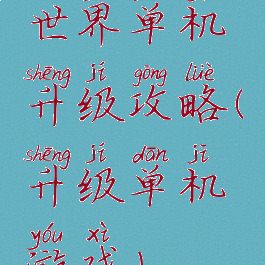 世界单机
shēng jí gōng lüè
升级攻略(
shēng jí dān jī
升级单机
yóu xì
游戏)